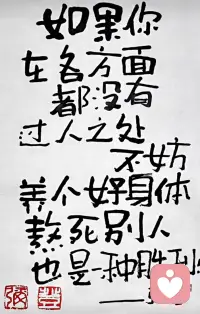 如果你
在各方面
都没有
过人之处
不妨
养个好身体
熬死别人
也是一种胜利